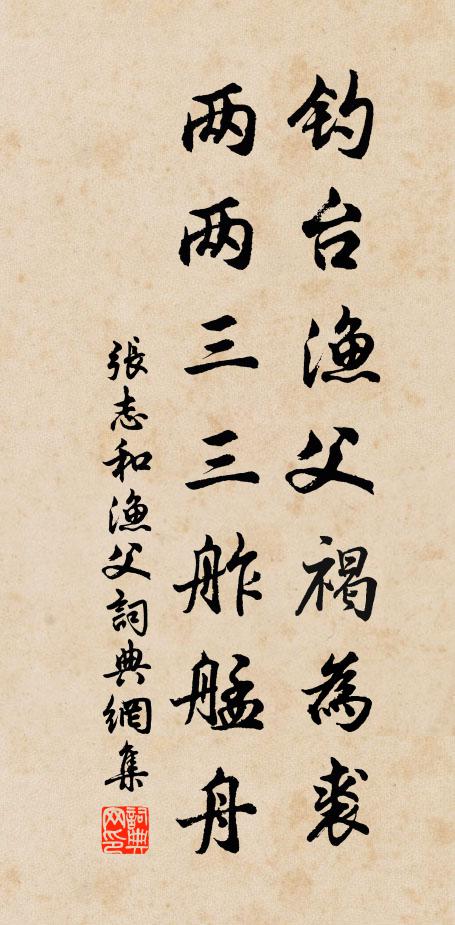 钓台渔父褐為裘
两两三三舴艋舟
張志和漁父詞典網集
詞典网印